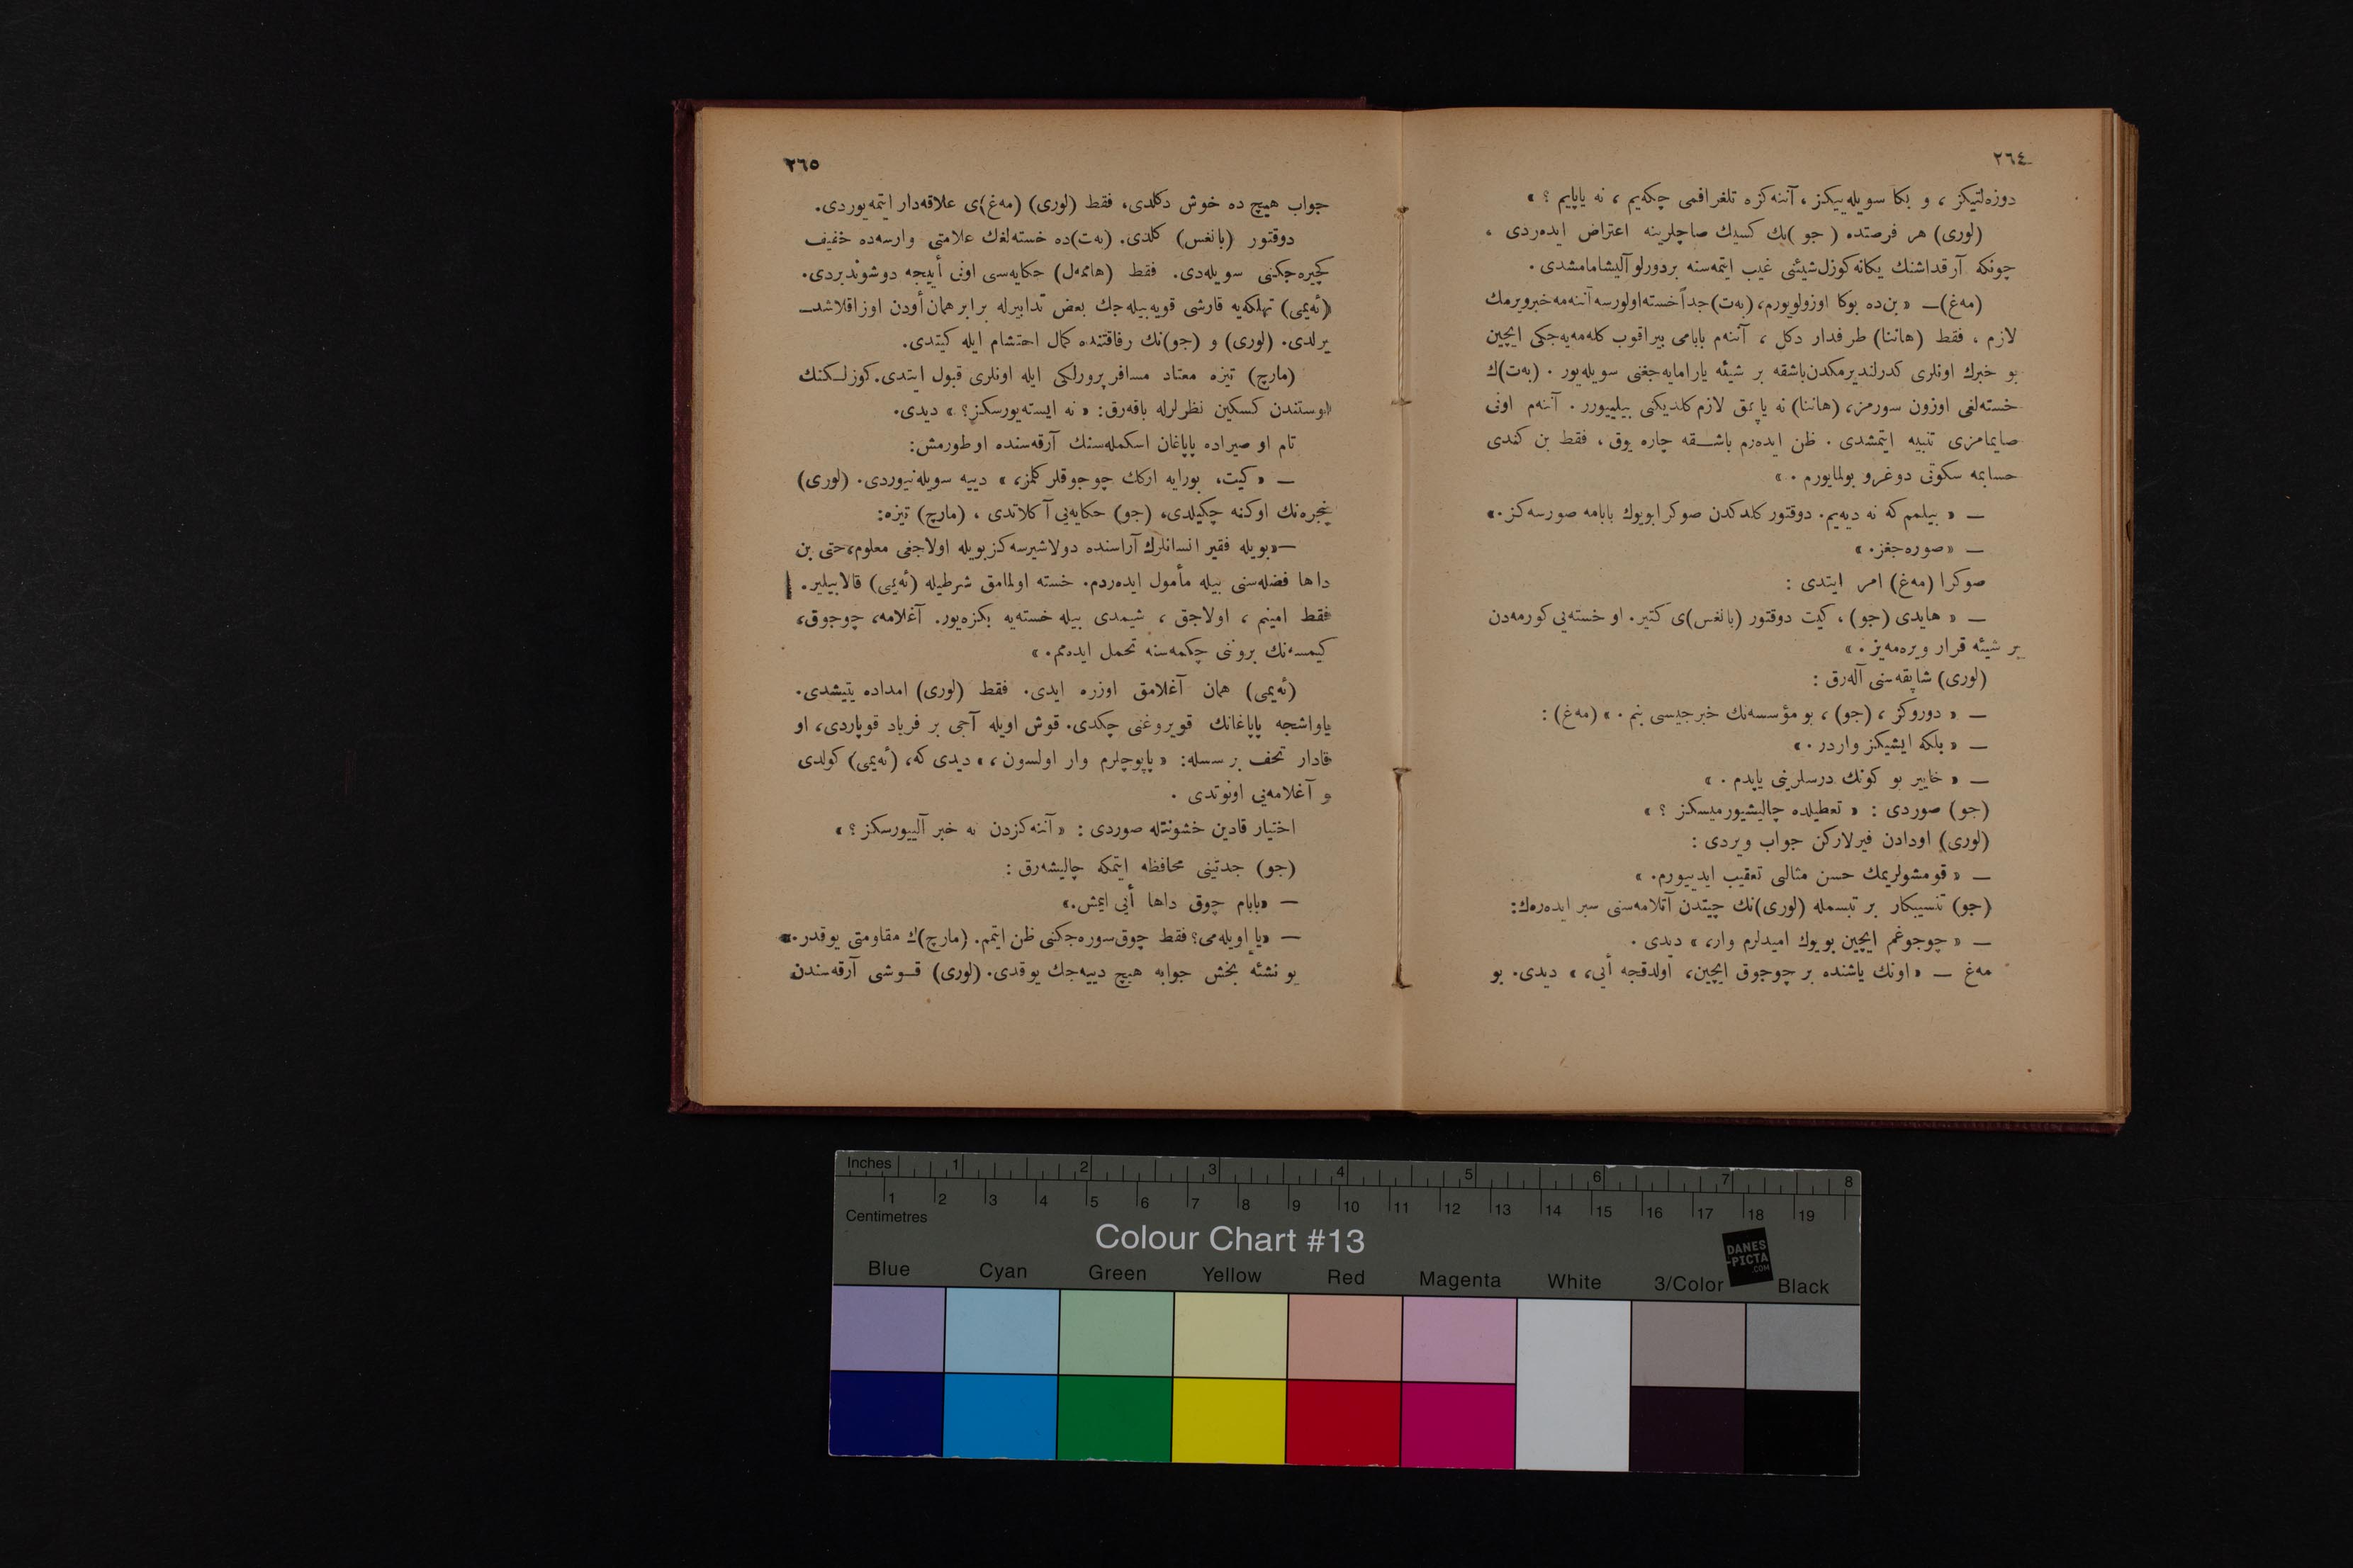 ٢٦٤
دوزه‌لتیكز ، و بكا سویله‌ییكز ، آننه‌كزه تلغرافمی چكه‌یم ، نه یاپایم ؟ »
(لوری) هر فرصتده ( جو )نك كسیك صاچلرینه اعتراض ایده‌ردی ،
چونكه آرقداشنك یكانه كوزل شیئنی غیب ایتمه‌سنه بردورلو آلیشامامشدی .
(مه‌غ) — « بن‌ده بوكا اوزولویورم، (به‌ت) جداً خسته اولورسه آننه‌مه خبرویرمك
لازم ، فقط (هاننا) طرفدار دكل ، آننه‌م بابامی بیراقوب كله‌مه‌یه‌جكی ایچین
بو خبرك اونلری كدرلندیرمكدن باشقه بر شیئه یارامایه‌جغنی سویله‌یور . (به‌ت)ك
خسته‌لغی اوزون سورمز، (هاننا) نه یاپمق لازم كلدیكنی بیلییورر . آننه‌م اونی
صایمامزی تنبیه ایتمشدی . ظن ایده‌رم باشـقه چاره یوق ، فقط بن كندی
حسابمه سكوتی دوغرو بولمایورم . »
— « بیلمم كه نه دیه‌یم. دوقتور كلدكدن صوكرا بویوك بابامه صورسه‌كز .»
— «صوره‌جغز. »
صوكرا (مه‌غ) امر ایتدی :
— « هایدی (جو) ، كیت دوقتور (بانغس)ی كتیر. او خسته‌یی كورمه‌دن
بر شیئه قرار ویره‌مه‌یز . »
(لوری) شاپقه‌سنی آله‌رق :
— « دوروكز ، (جو) ، بو مؤسسه‌نك خبرجیسی بنم . » (مه‌غ) :
— « بلكه ایشیكز واردر . »
— « خاییر بو كونك درسلرینی یاپدم . »
(جو) صوردی : « تعطیلده چالیشیورمیسكز ؟ »
(لوری) اودادن فیرلاركن جواب ویردی :
— « قومشولریمك حسن مثالی تعقیب ایدییورم. »
(جو) تنسیبكار بر تبسمله (لوری)نك چیتدن آتلامه‌سنی سیر ایده‌رەك:
— « چوجوغم ایچین بویوك امیدلرم وار، » دیدی .
مه‌غ — « اونك یاشنده بر چوجوق ایچین، اولدقجه أیی، » دیدی. بو
٢٦٥
جواب هیچ ده خوش دكلدی، فقط (لوری) (مه‌غ)ی علاقه‌دار ایتمه‌یوردی.
دوقتور (بانغس) كلدی. (به‌ت)ده خسته‌لغك علامتی وارسه‌ده خفیف
كچیره‌جكنی سویله‌دی. فقط (هاممه‌ل) حكایه‌سی اونی أپیجه دوشوندیردی.
(ئه‌یمی) تهلكه‌یه قارشی قویه‌بیله‌جك بعض تدابیرله برابر همان أودن اوزاقلاشد—
یرلدی. (لوری) و (جو)نك رفاقتنده كمال احتشام ایله كیتدی.
(مارچ) تیزه معتاد مسافرپرورلكی ایله اونلری قبول ایتدی. كوزلـكنك
اوستندن كسكین نظرلرله باقه‌رق: « نه ایسته‌یورسكز؟ » دیدی.
تام او صیراده پاپاغان اسكمله‌سنك آرقه‌سنده اوطورمش:
— « كیت، بورایه اركك چوجوقلر كلمز، » دییه سویله‌نیوردی. (لوری)
پنجره‌نك اوكنه چكیلدی، (جو) حكایه‌یی آكلاتدی ، (مارچ) تیزه:
—«بویله فقیر انسانلرك آراسنده دولاشیرسه‌كز بویله اولاجغی معلوم، حتی بن
داها فضله‌سنی بیله مأمول ایده‌ردم. خسته اولمامق شرطیله (ئه‌یمی) قالابیلیر.
فقط امینم ، اولاجق ، شیمدی بیله خسته‌یه بكزه‌یور. آغلامه، چوجوق،
كیمسه‌نك بروننی چكمه‌سنه تحمل ایده‌مم. »
(ئه‌یمی) همان آغلامق اوزره ایدی. فقط (لوری) امداده یتیشدی.
یاواشجه پاپاغانك قویروغنی چكدی. قوش اویله آجی بر فریاد قوپاردی، او
قادار تحف بر سسله: « پاپوچلرم وار اولسون ، » دیدی كه، (ئه‌یمی) كولدی
و آغلامه‌یی اونوتدی .
اختیار قادین خشونتله صوردی : « آننه‌كزدن نه خبر آلییورسكز ؟ »
(جو) جدتینی محافظه ایتمكه چالیشه‌رق :
— «بابام چوق داها أیی ایمش.»
— «یا اویله‌می؟ فقط چوق سوره‌جكنی ظن ایتمم. (مارچ)ك مقاومتی یوقدر.»
بو نشئه بخش جوابه هیچ دییه‌جك یوقدی. (لوری) قـوشی آرقه‌سندن
Inches 1 2 3 4 5 6 7 8
1 2 3 4 5 6 7 8 9 10 11 12 13 14 15 16 17 18 19
Centimetres
Colour Chart #13
DANES
-PICTA
.COM
Blue Cyan Green Yellow Red Magenta White 3/Color Black